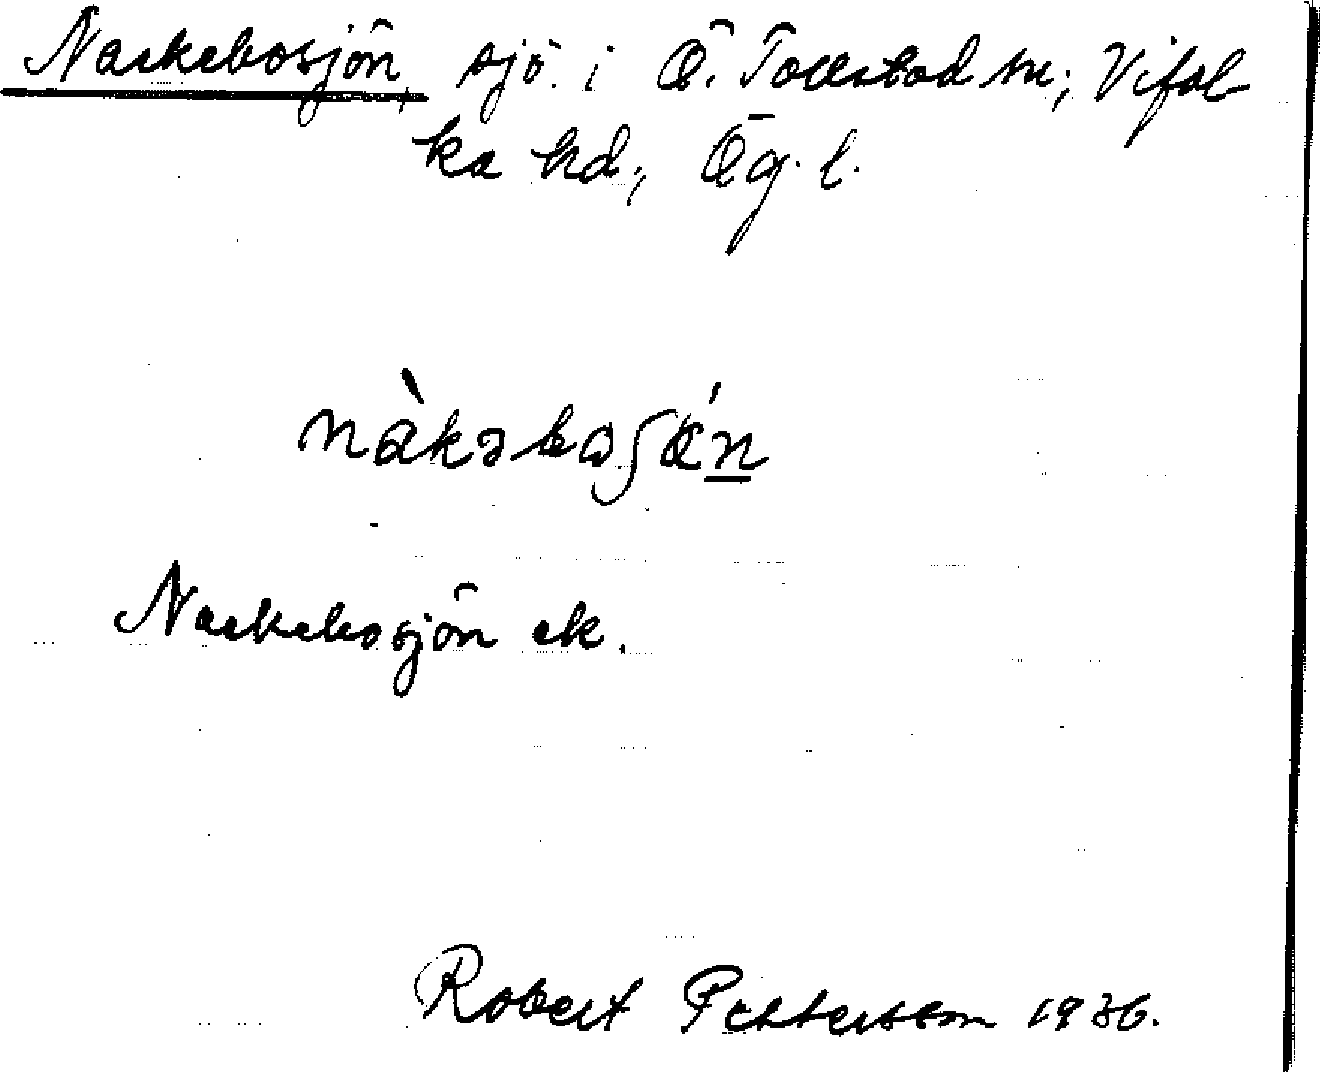 Nackebosjön sjö i Ö. Tollstad sn; Vifol
ka hd; Ög. l.
nàkəboʃǿn
Nackebosjön ek.
Robert Pettersson 1936.